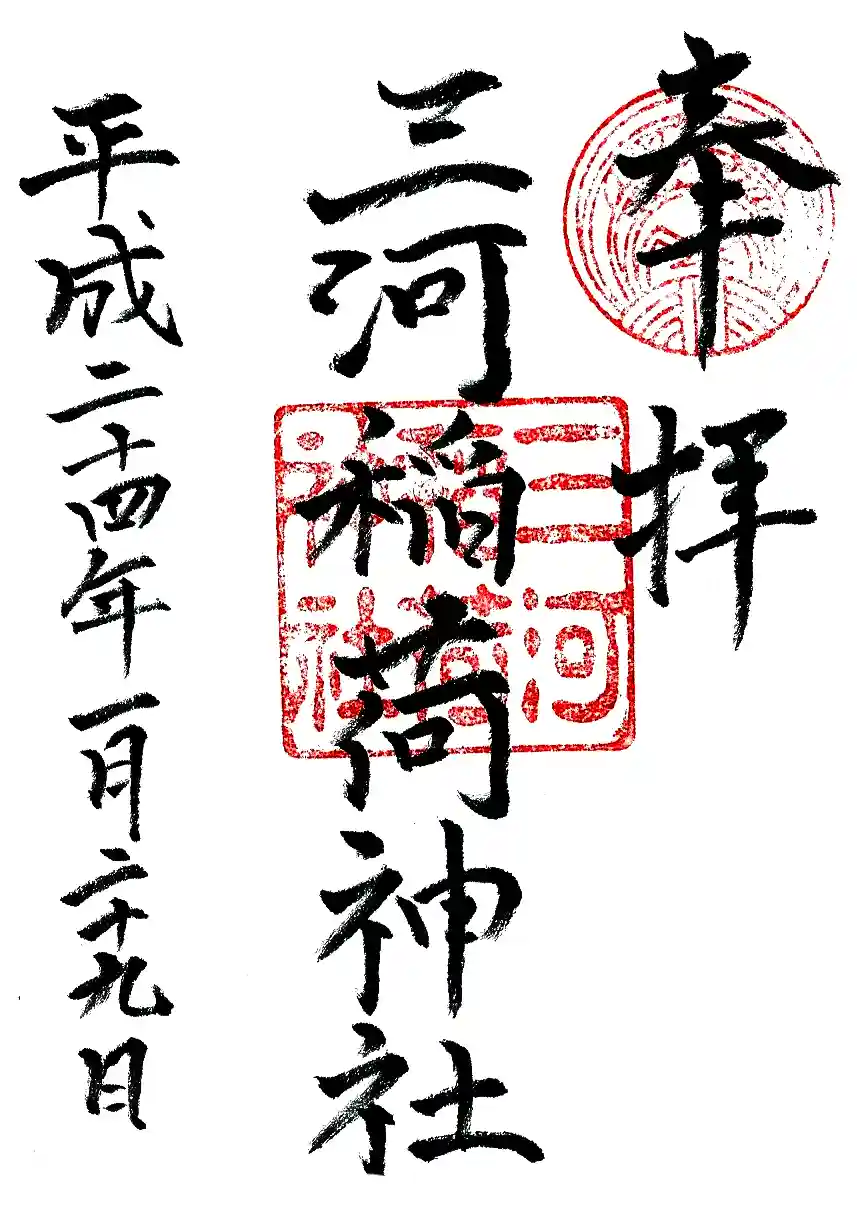 奉拝
三河稲荷神社
平成二十四年一月二十九日
三河
稲荷
神社